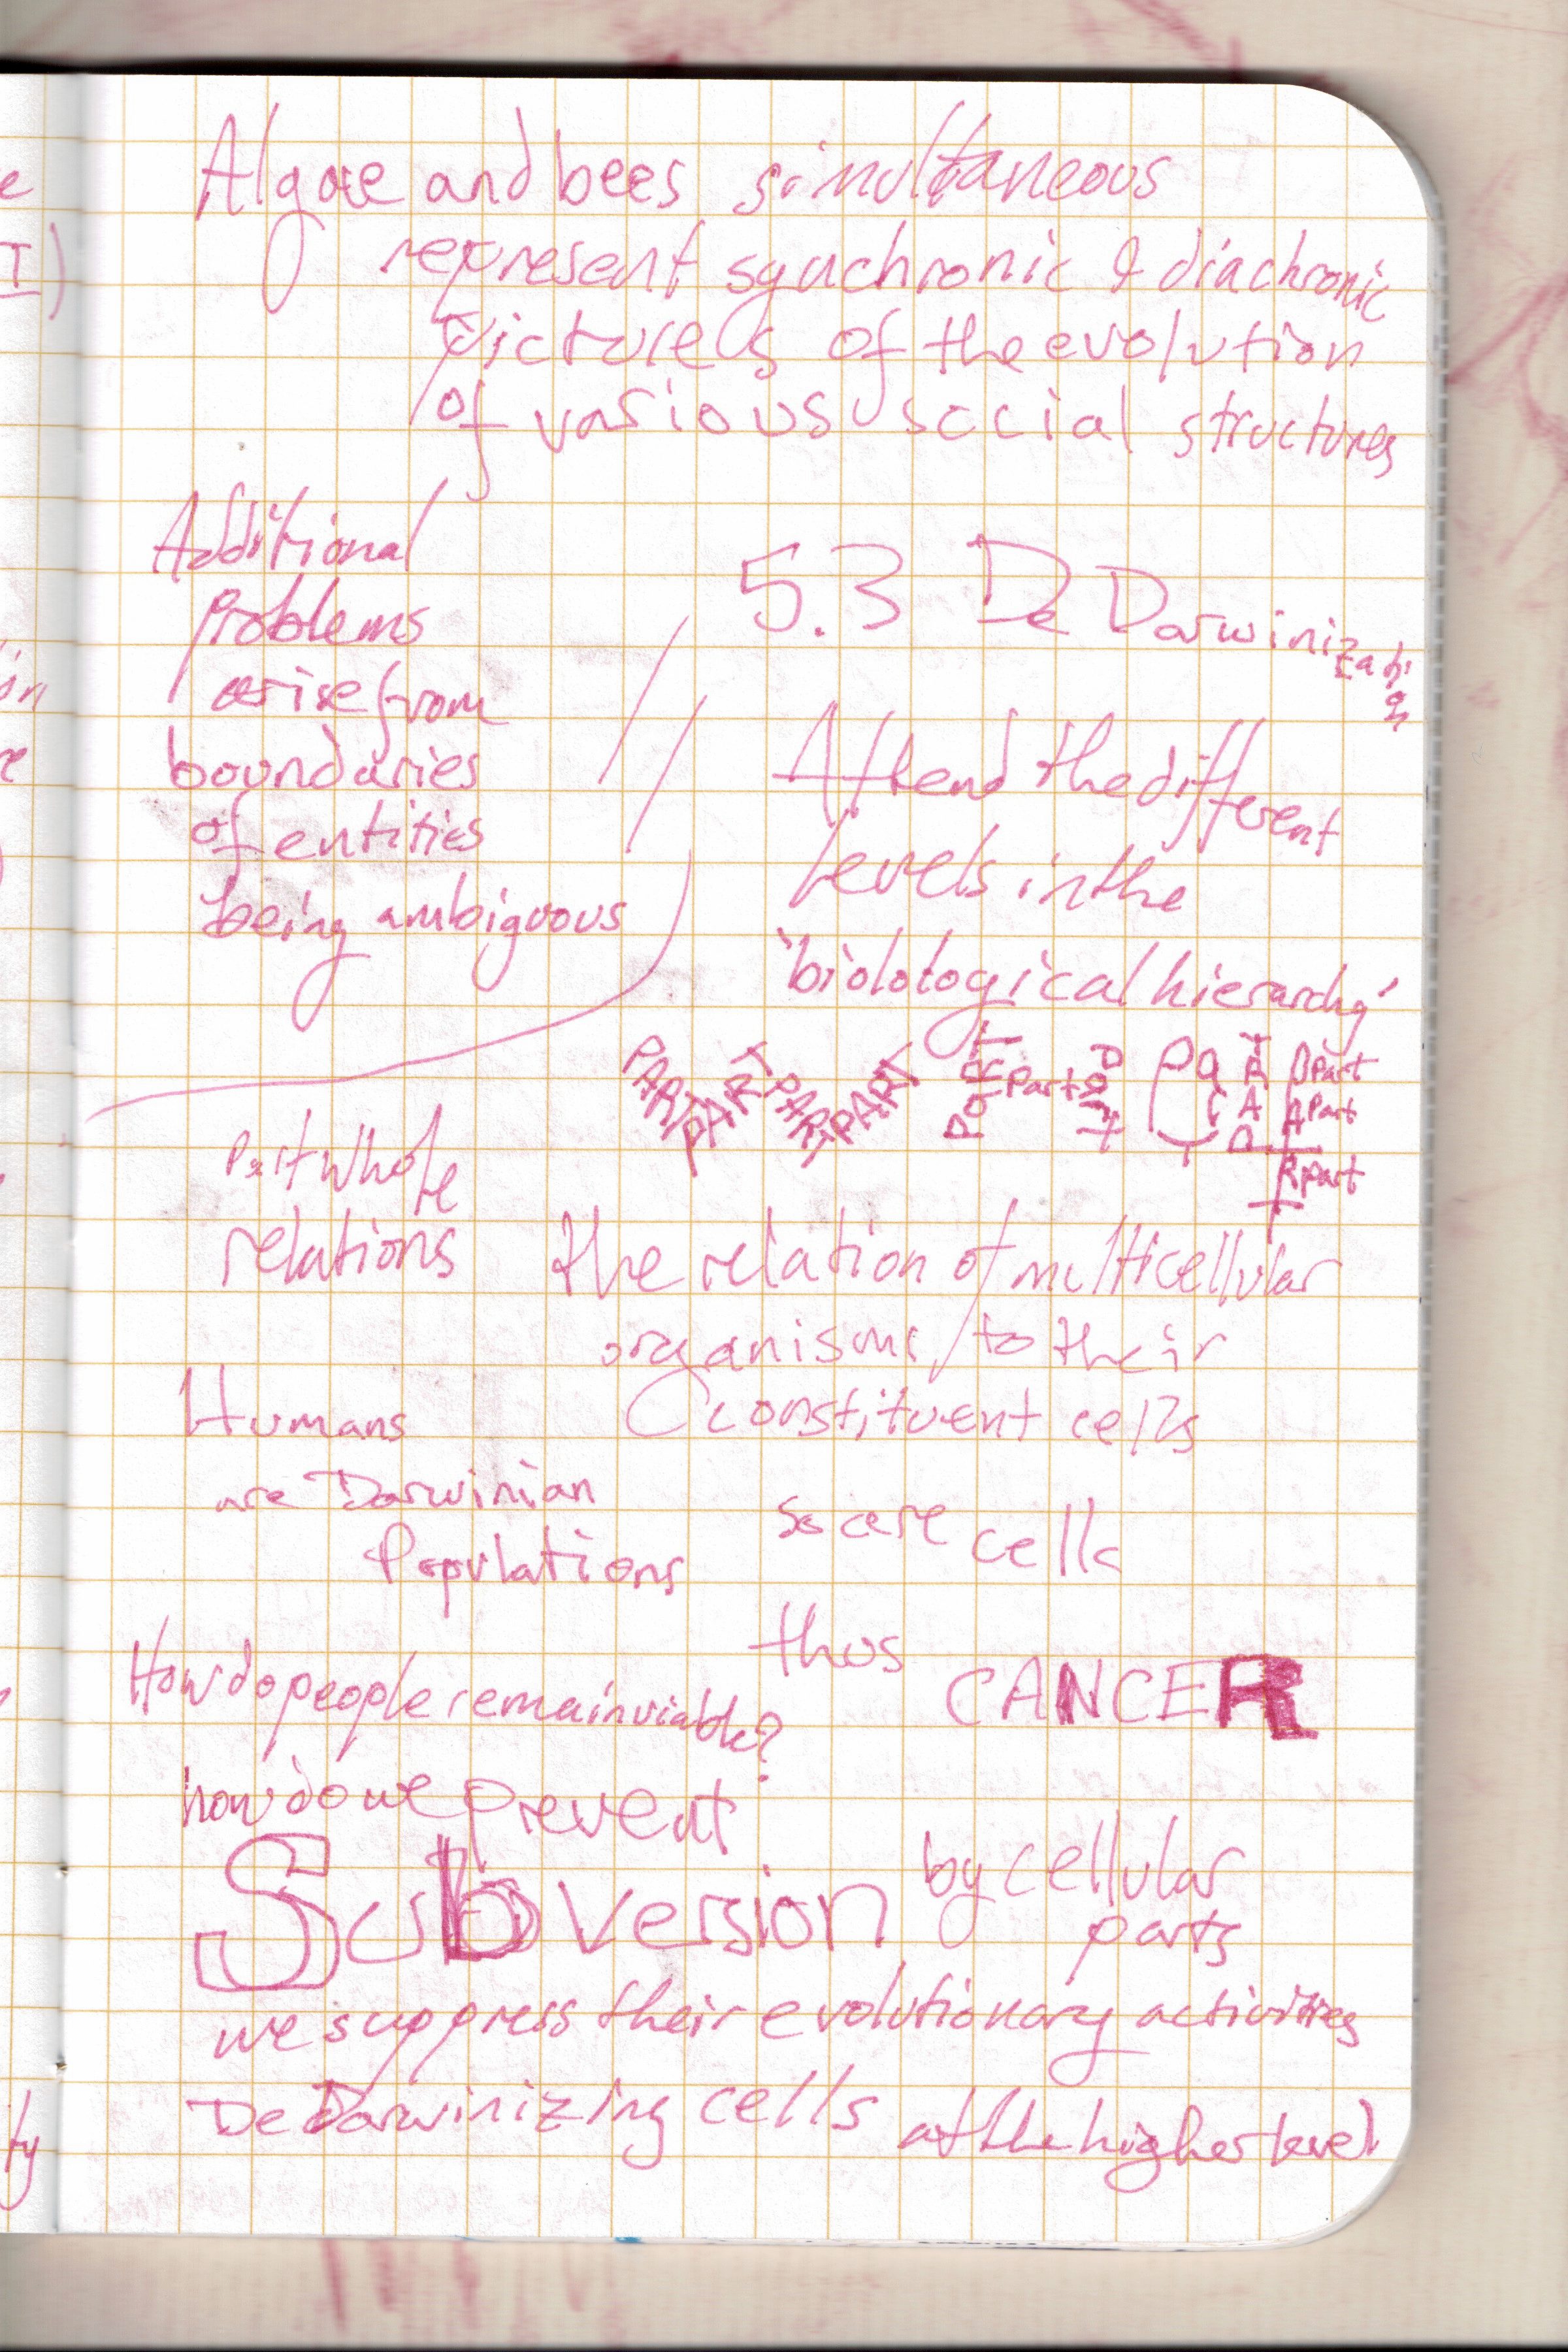 Algae and bees simultaneous
represent synchronic & diachronic
pictures of the evolution
of various social structures
Additional
problems
arise from
boundaries
of entities
being ambiguous
5.3 De Darwinization
Attend the different
levels in the
'biolological hierarchy'
PART PART PART PART Part Part Part Part PART PART Part
Part
Part
Part Whole
relations
the relation of multicellular
organisms to their
constituent cells
Humans
are Darwinian
Populations
so are cells
thus CANCER
How do people remain viable?
how do we prevent
Subversion by cellular
parts
we suppress their evolutionary activities
De Darwinizing cells at the higher level
e
I)
on
e
ty